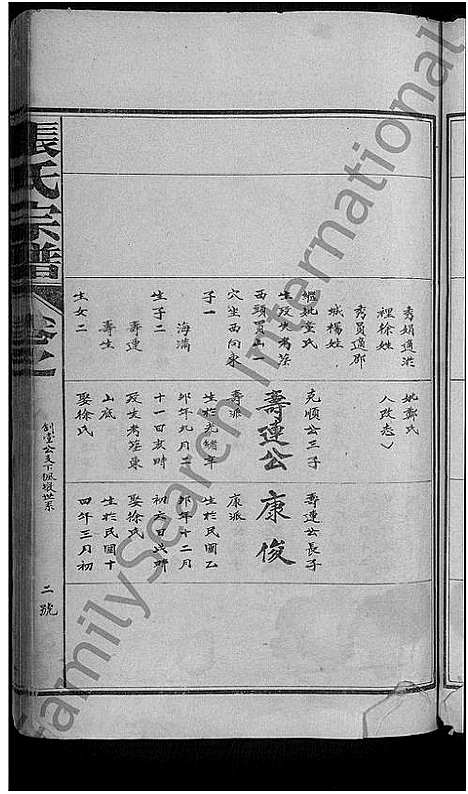 秀娟適洪
裡徐姓
秀員適鄒
城楊姓
繼妣童氏
生歿失考葬
西頭買山一
穴坐西向東
子一
海濤
生子二
壽連
壽生
生女二
妣鄭氏
人改志
克順公三子
壽連公
壽派
生於光緒年
卯年九月二
十一日亥時
歿失考葬東
山底
娶徐氏
壽連公長子
康俊
康派
生於民國乙
卯年十二月
初六日
娶徐氏
生於民國十
四年三月初
張氏宗譜
卷之
二號
FamilySearch International